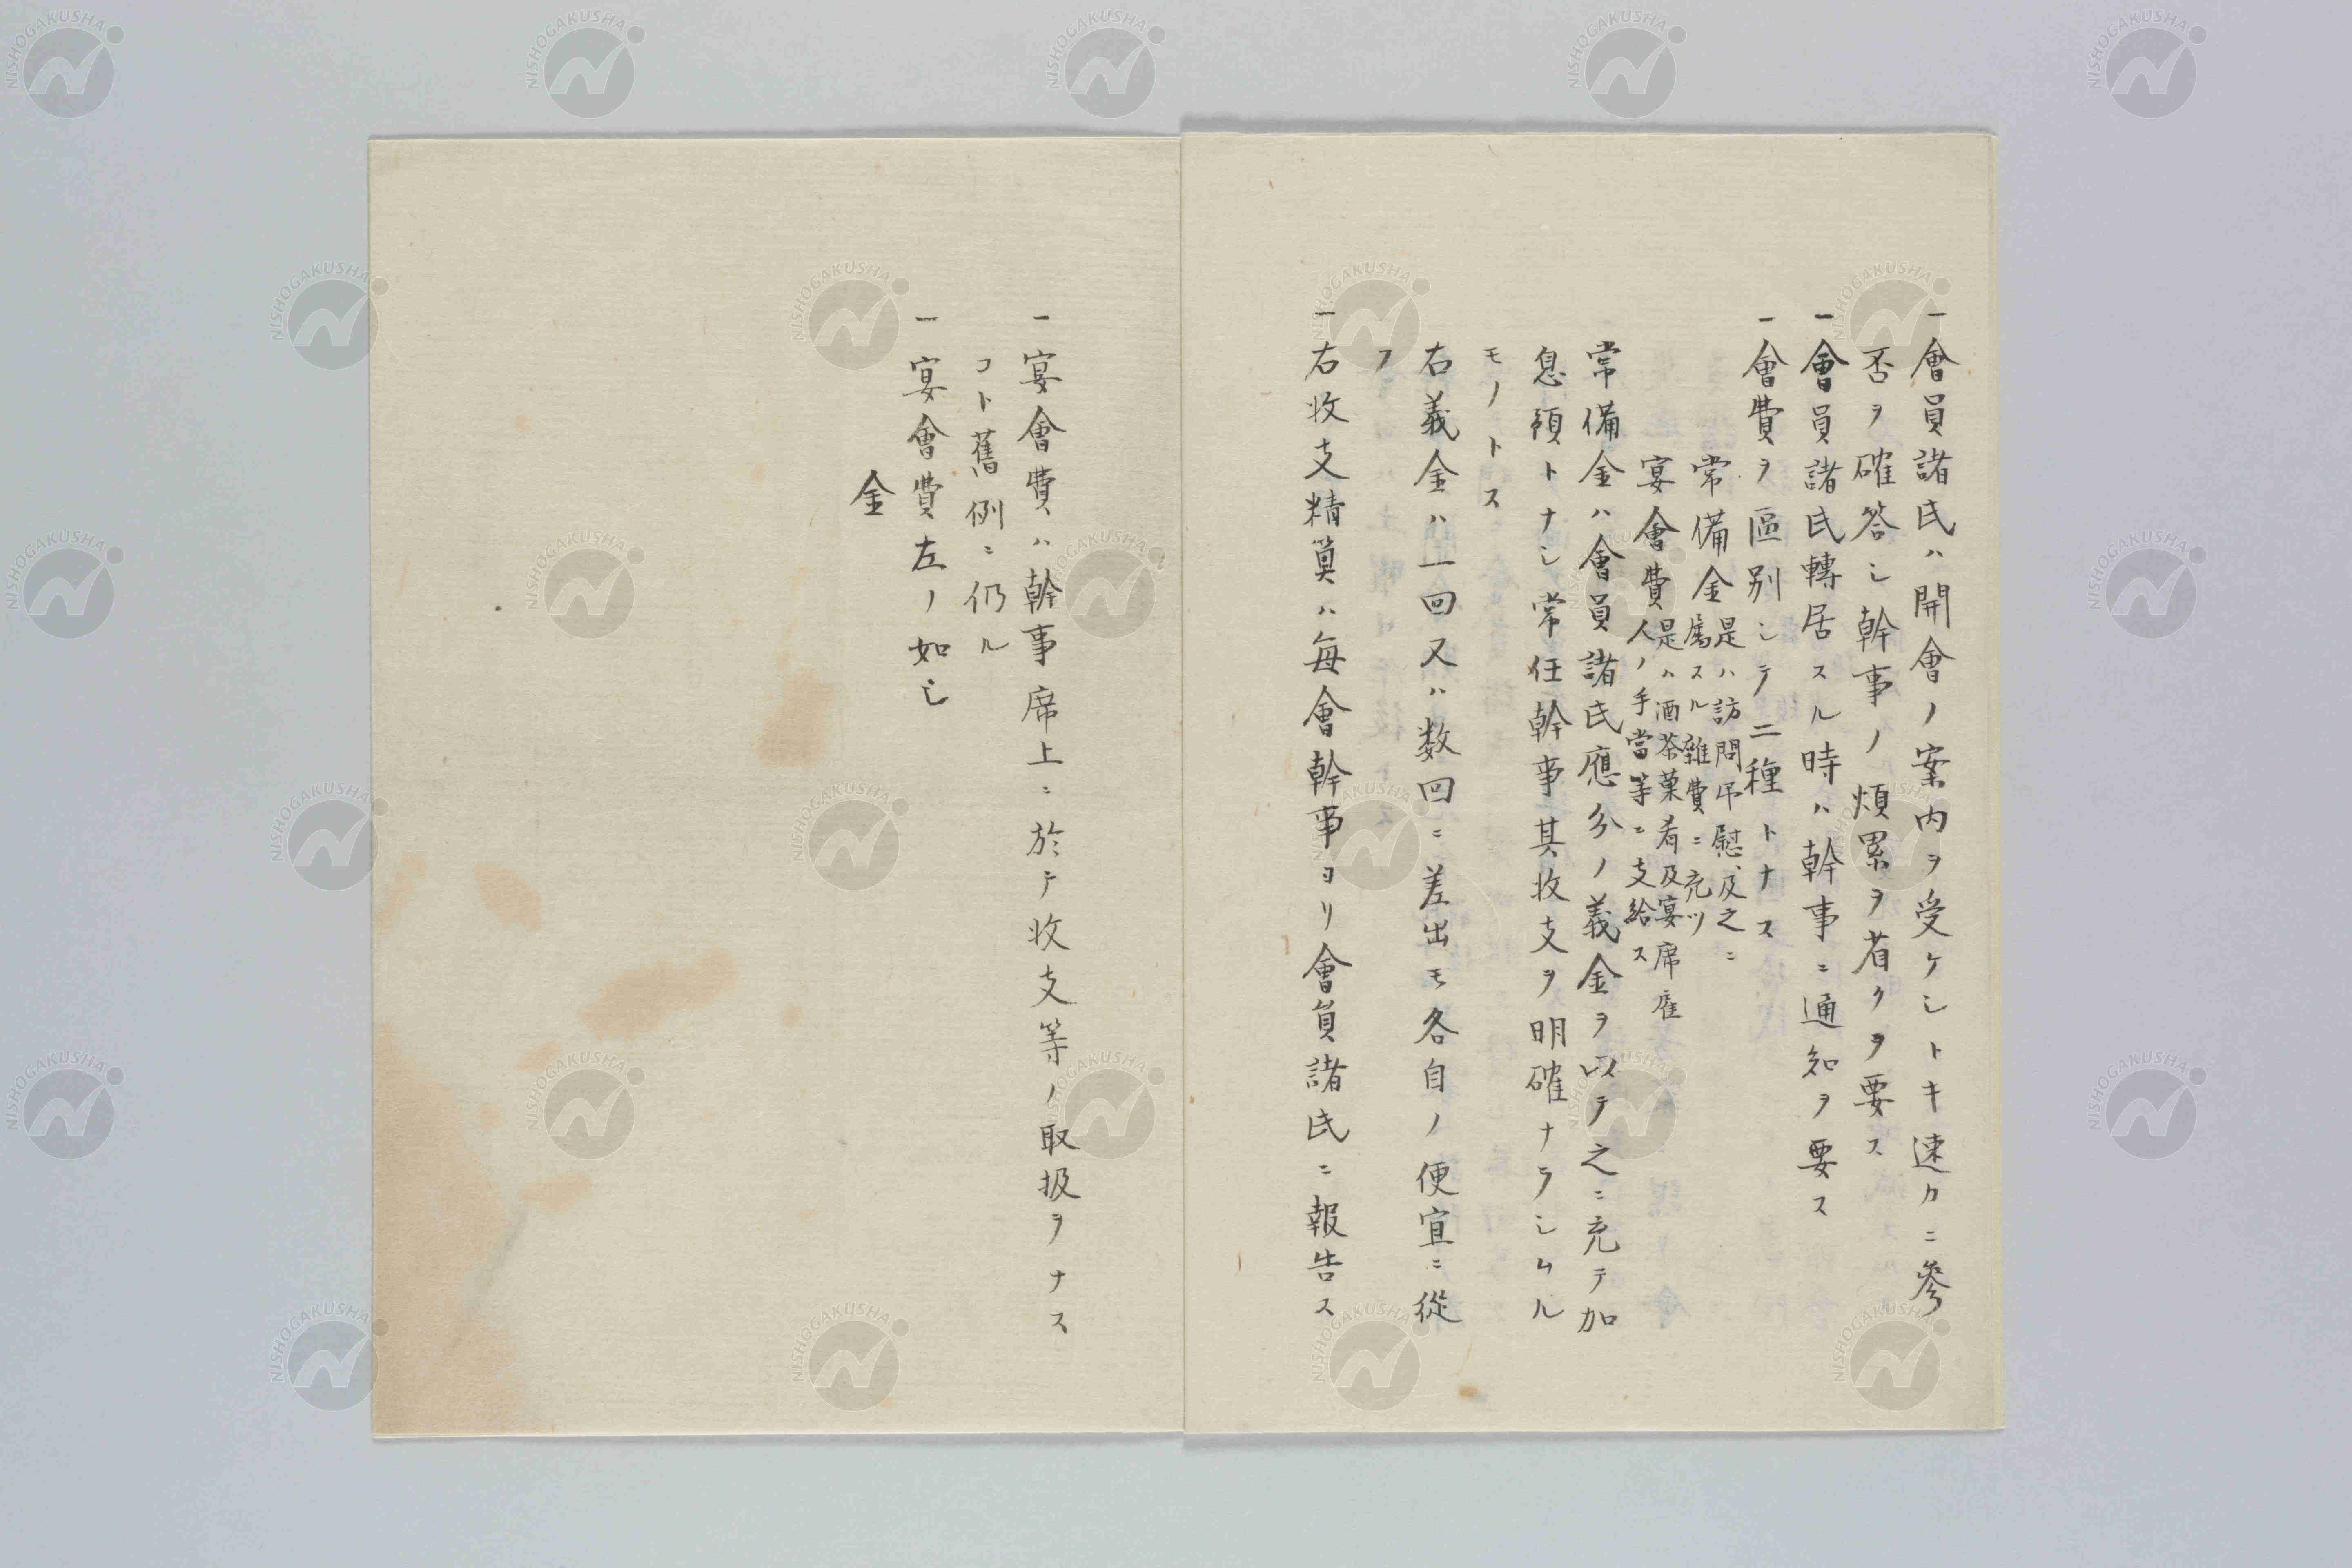 一會員諸氏ハ開會ノ案内ヲ受ケシトキ速カニ參
否ヲ確答シ幹事ノ煩累ヲ省クヲ要ス
一會員諸氏轉居スル時ハ幹事ニ通知ヲ要ス
一會費ヲ區別シテ二種トナス
常備金是ハ訪問吊慰、及之ニ
属スル雜費ニ充ツ
宴會費是ハ酒茶菓肴及宴席雇
人ノ手當等ニ支給ス
常備金ハ會員諸氏應分ノ義金ヲ以テ之ニ充テ加
息預トナシ常任幹事其收支ヲ明確ナラシムル
モノトス
右義金ハ一回又ハ数回ニ差出モ各自ノ便宜ニ從
フ
一右收支精算ハ毎會幹事ヨリ會員諸氏ニ報告ス
一宴會費ハ幹事席上ニ於テ收支等ノ取扱ヲナス
コト舊例ニ仍ル
一宴會費左ノ如シ
金
NISHOGAKUSHA